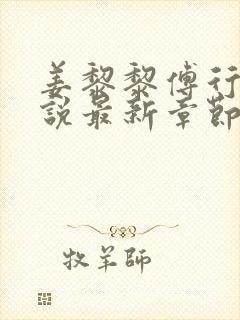 姜黎黎傅行
說最新章節
牧羊師